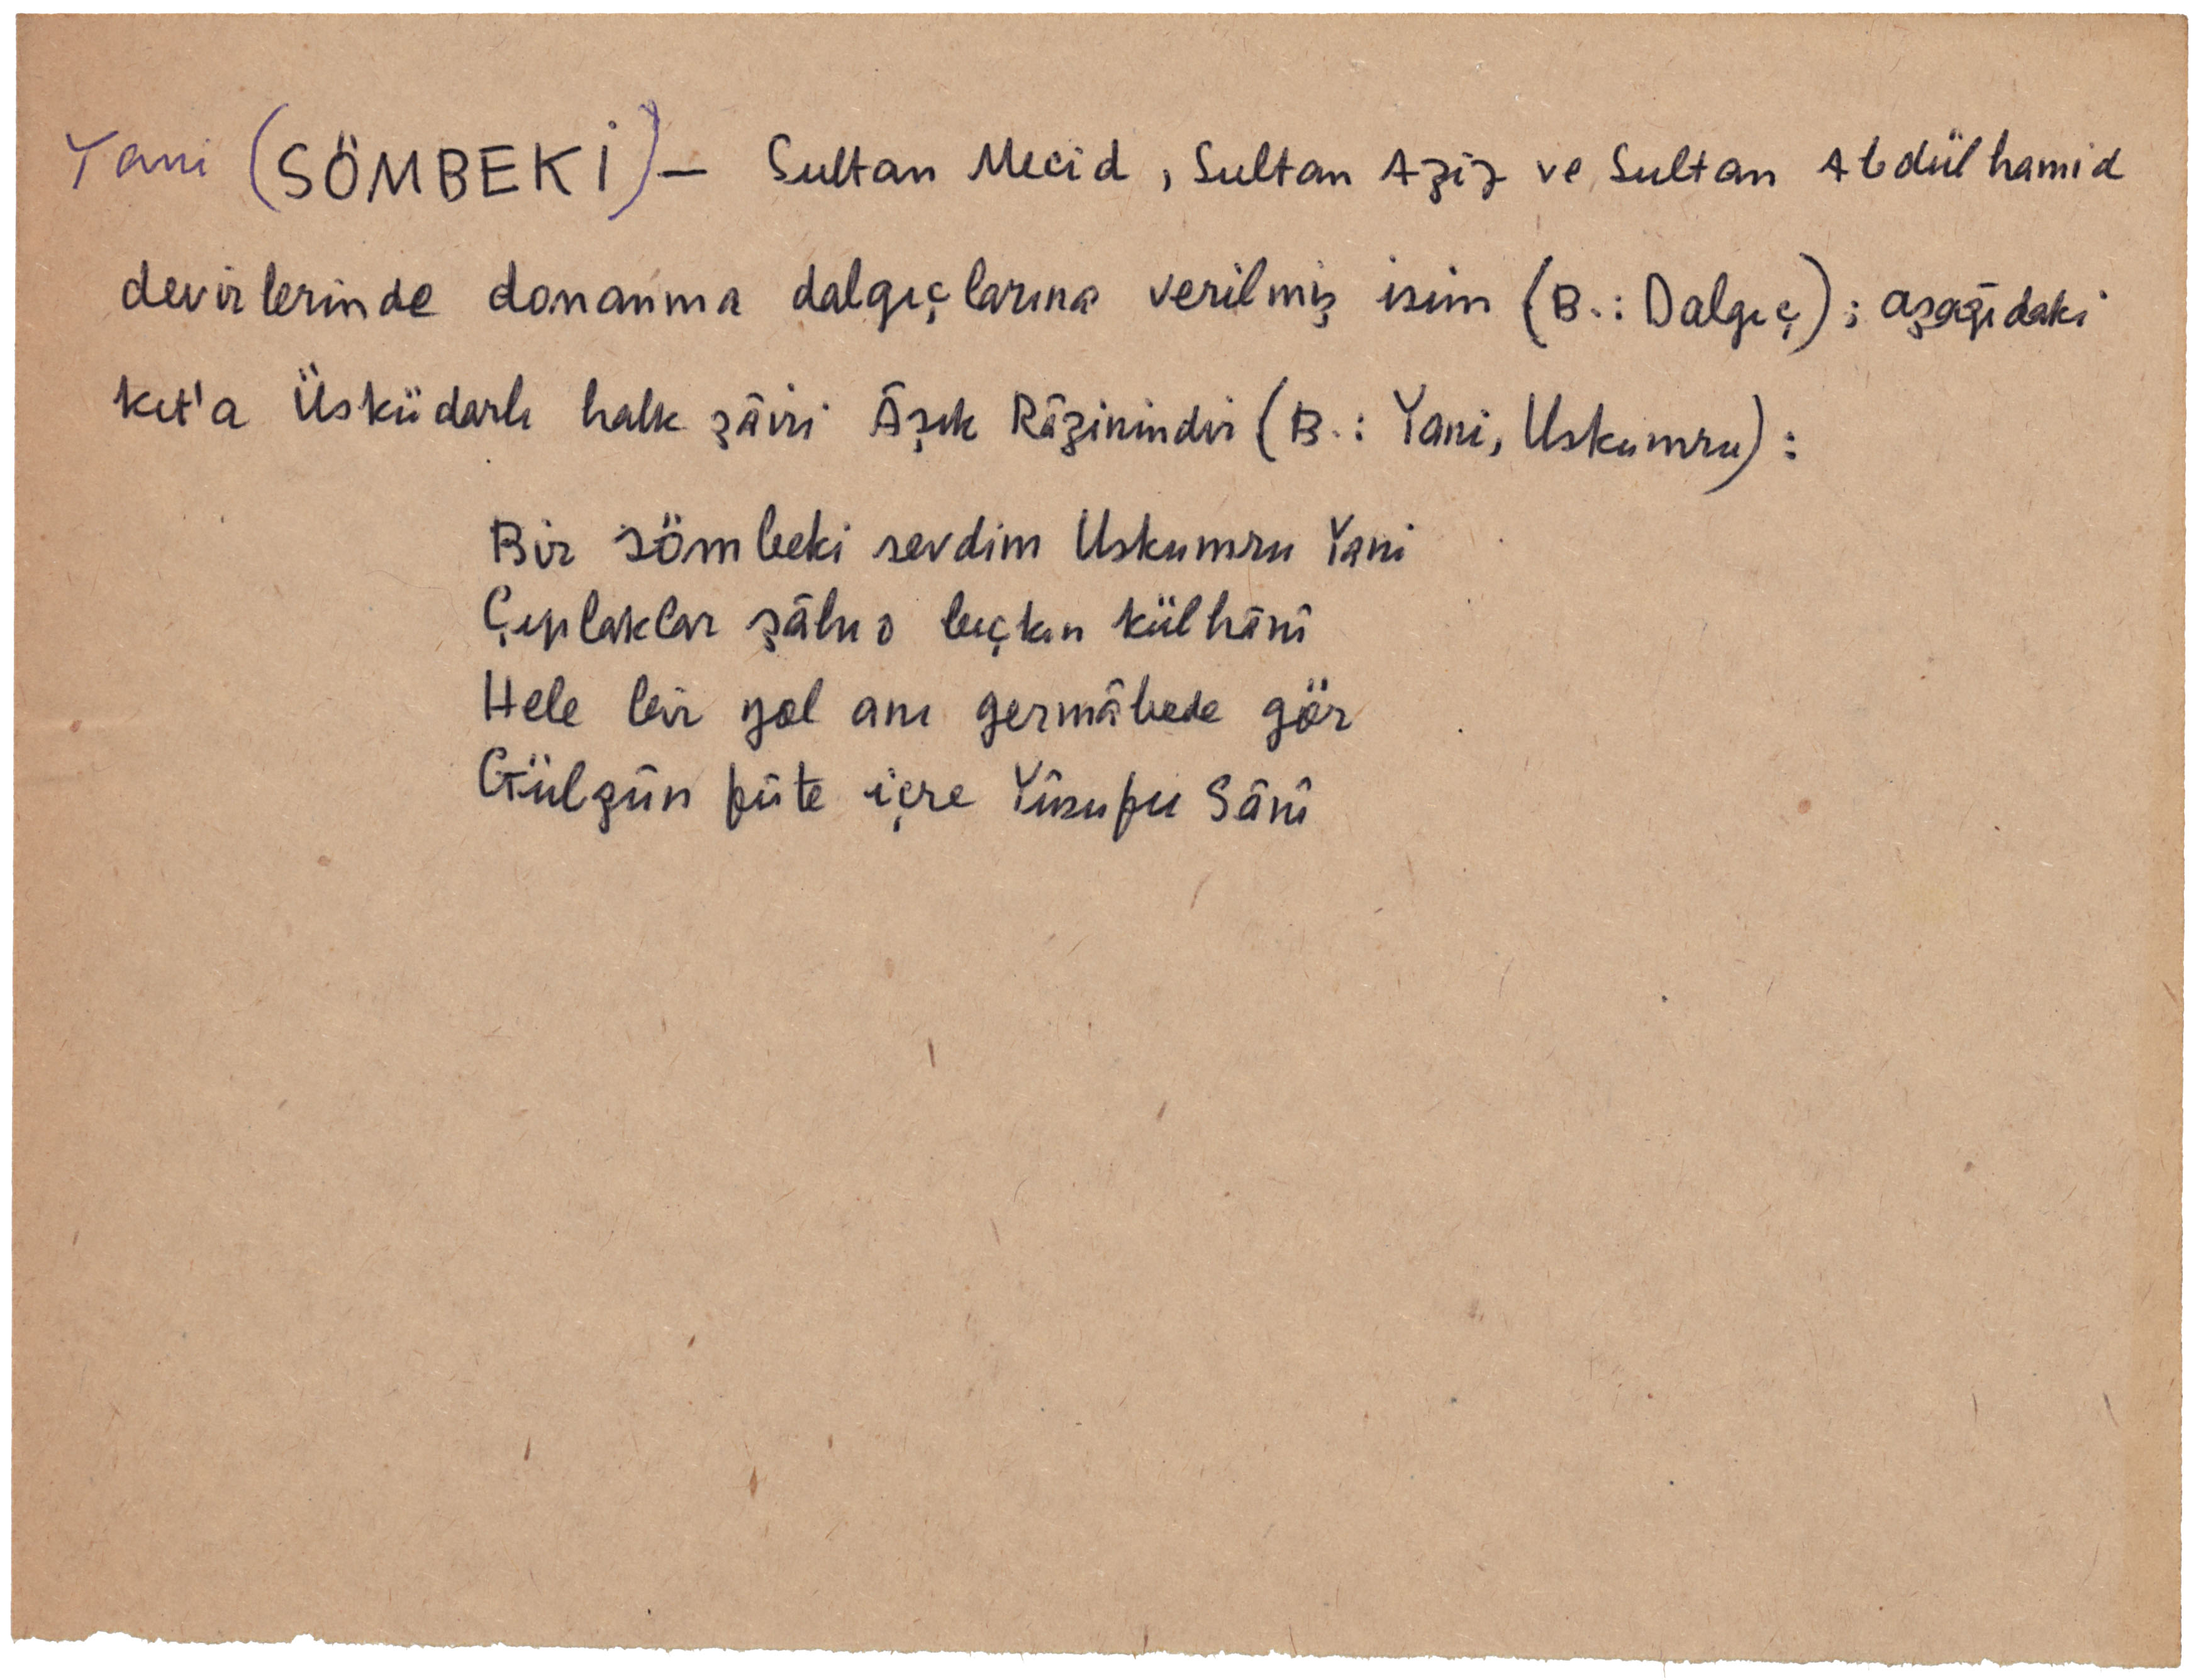 Yani (SÖMBEKİ) – Sultan Mecid, Sultan Aziz ve Sultan Abdülhamid
devirlerinde donanma dalgıçlarına verilmiş isim (B.: Dalgıç); aşağıdaki
kıt'a Üsküdarlı halk şâiri Âşık Râzinindir (B.: Yani, Uskumru):
Bir sömbeki sevdim Uskumru Yani
Çıplaklar şâhı o bıçkın külhânî
Hele bir yol anı germâbede gör
Gülgûn fûte içre Yûsufu Sânî